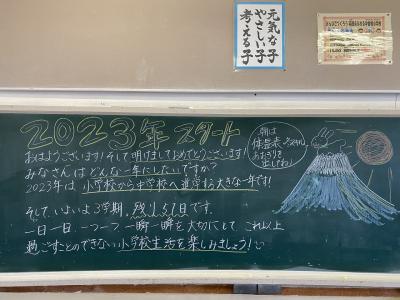 元気な子
やさしい子
考える子
2023年 スタート
おはようございます!そして明けましておめでとうございます!
みなさんはどんな一年にしたいですか?
2023年は小学校から中学校へ進学する大きな一年です!
そして、いよいよ3学期。残り51日です。
一日一日、一つ一つ、一瞬一瞬を大切にして これ以上
過ごすことのできない小学校生活を楽しみましょう!
朝は
体温表
出してね!